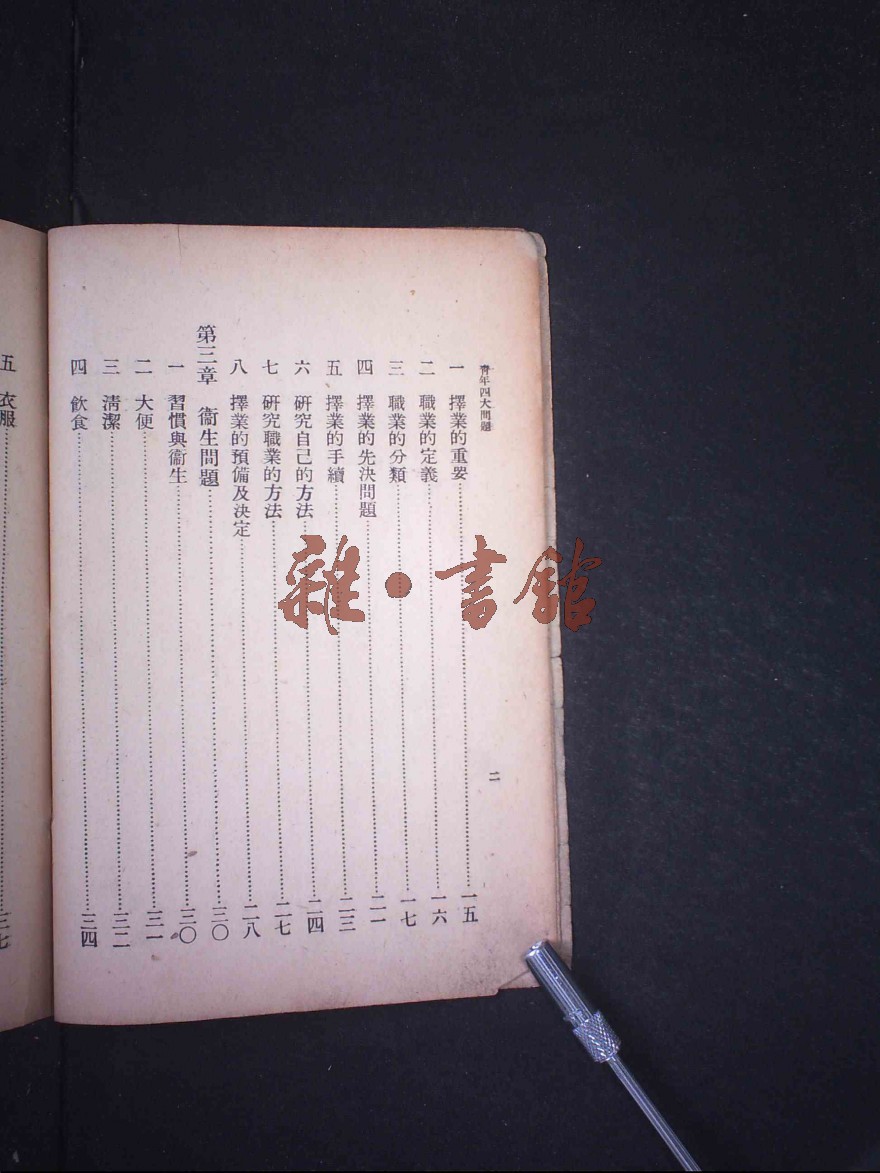 青年四大問題
二
一 擇業的重要 一五
二 職業的定義 一六
三 職業的分類 一七
四 擇業的先決問題 二一
五 擇業的手續 二三
六 研究自己的方法 二四
七 研究職業的方法 二七
八 擇業的預備及決定 二八
第三章 衞生問題 三〇
一 習慣與衞生 三〇
二 大便 三一
三 淸潔 三二
四 飮食 三四
五 衣服 三七
雜·書館